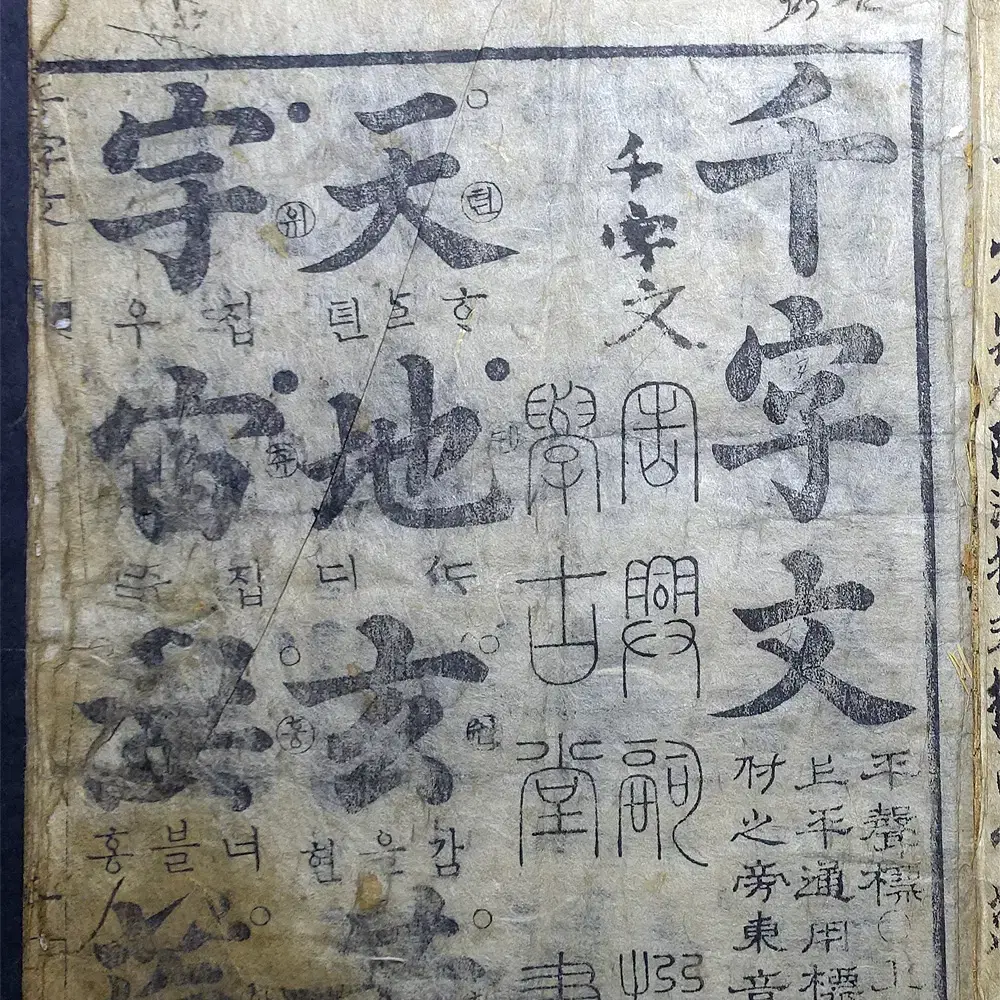 千字文
平聲標○上
上平通用標
付之旁東音
千字文
周興嗣
學古堂書
天 텬
텬
地
디
玄
감을현
宇 위
집우
宙
집
녀블홍